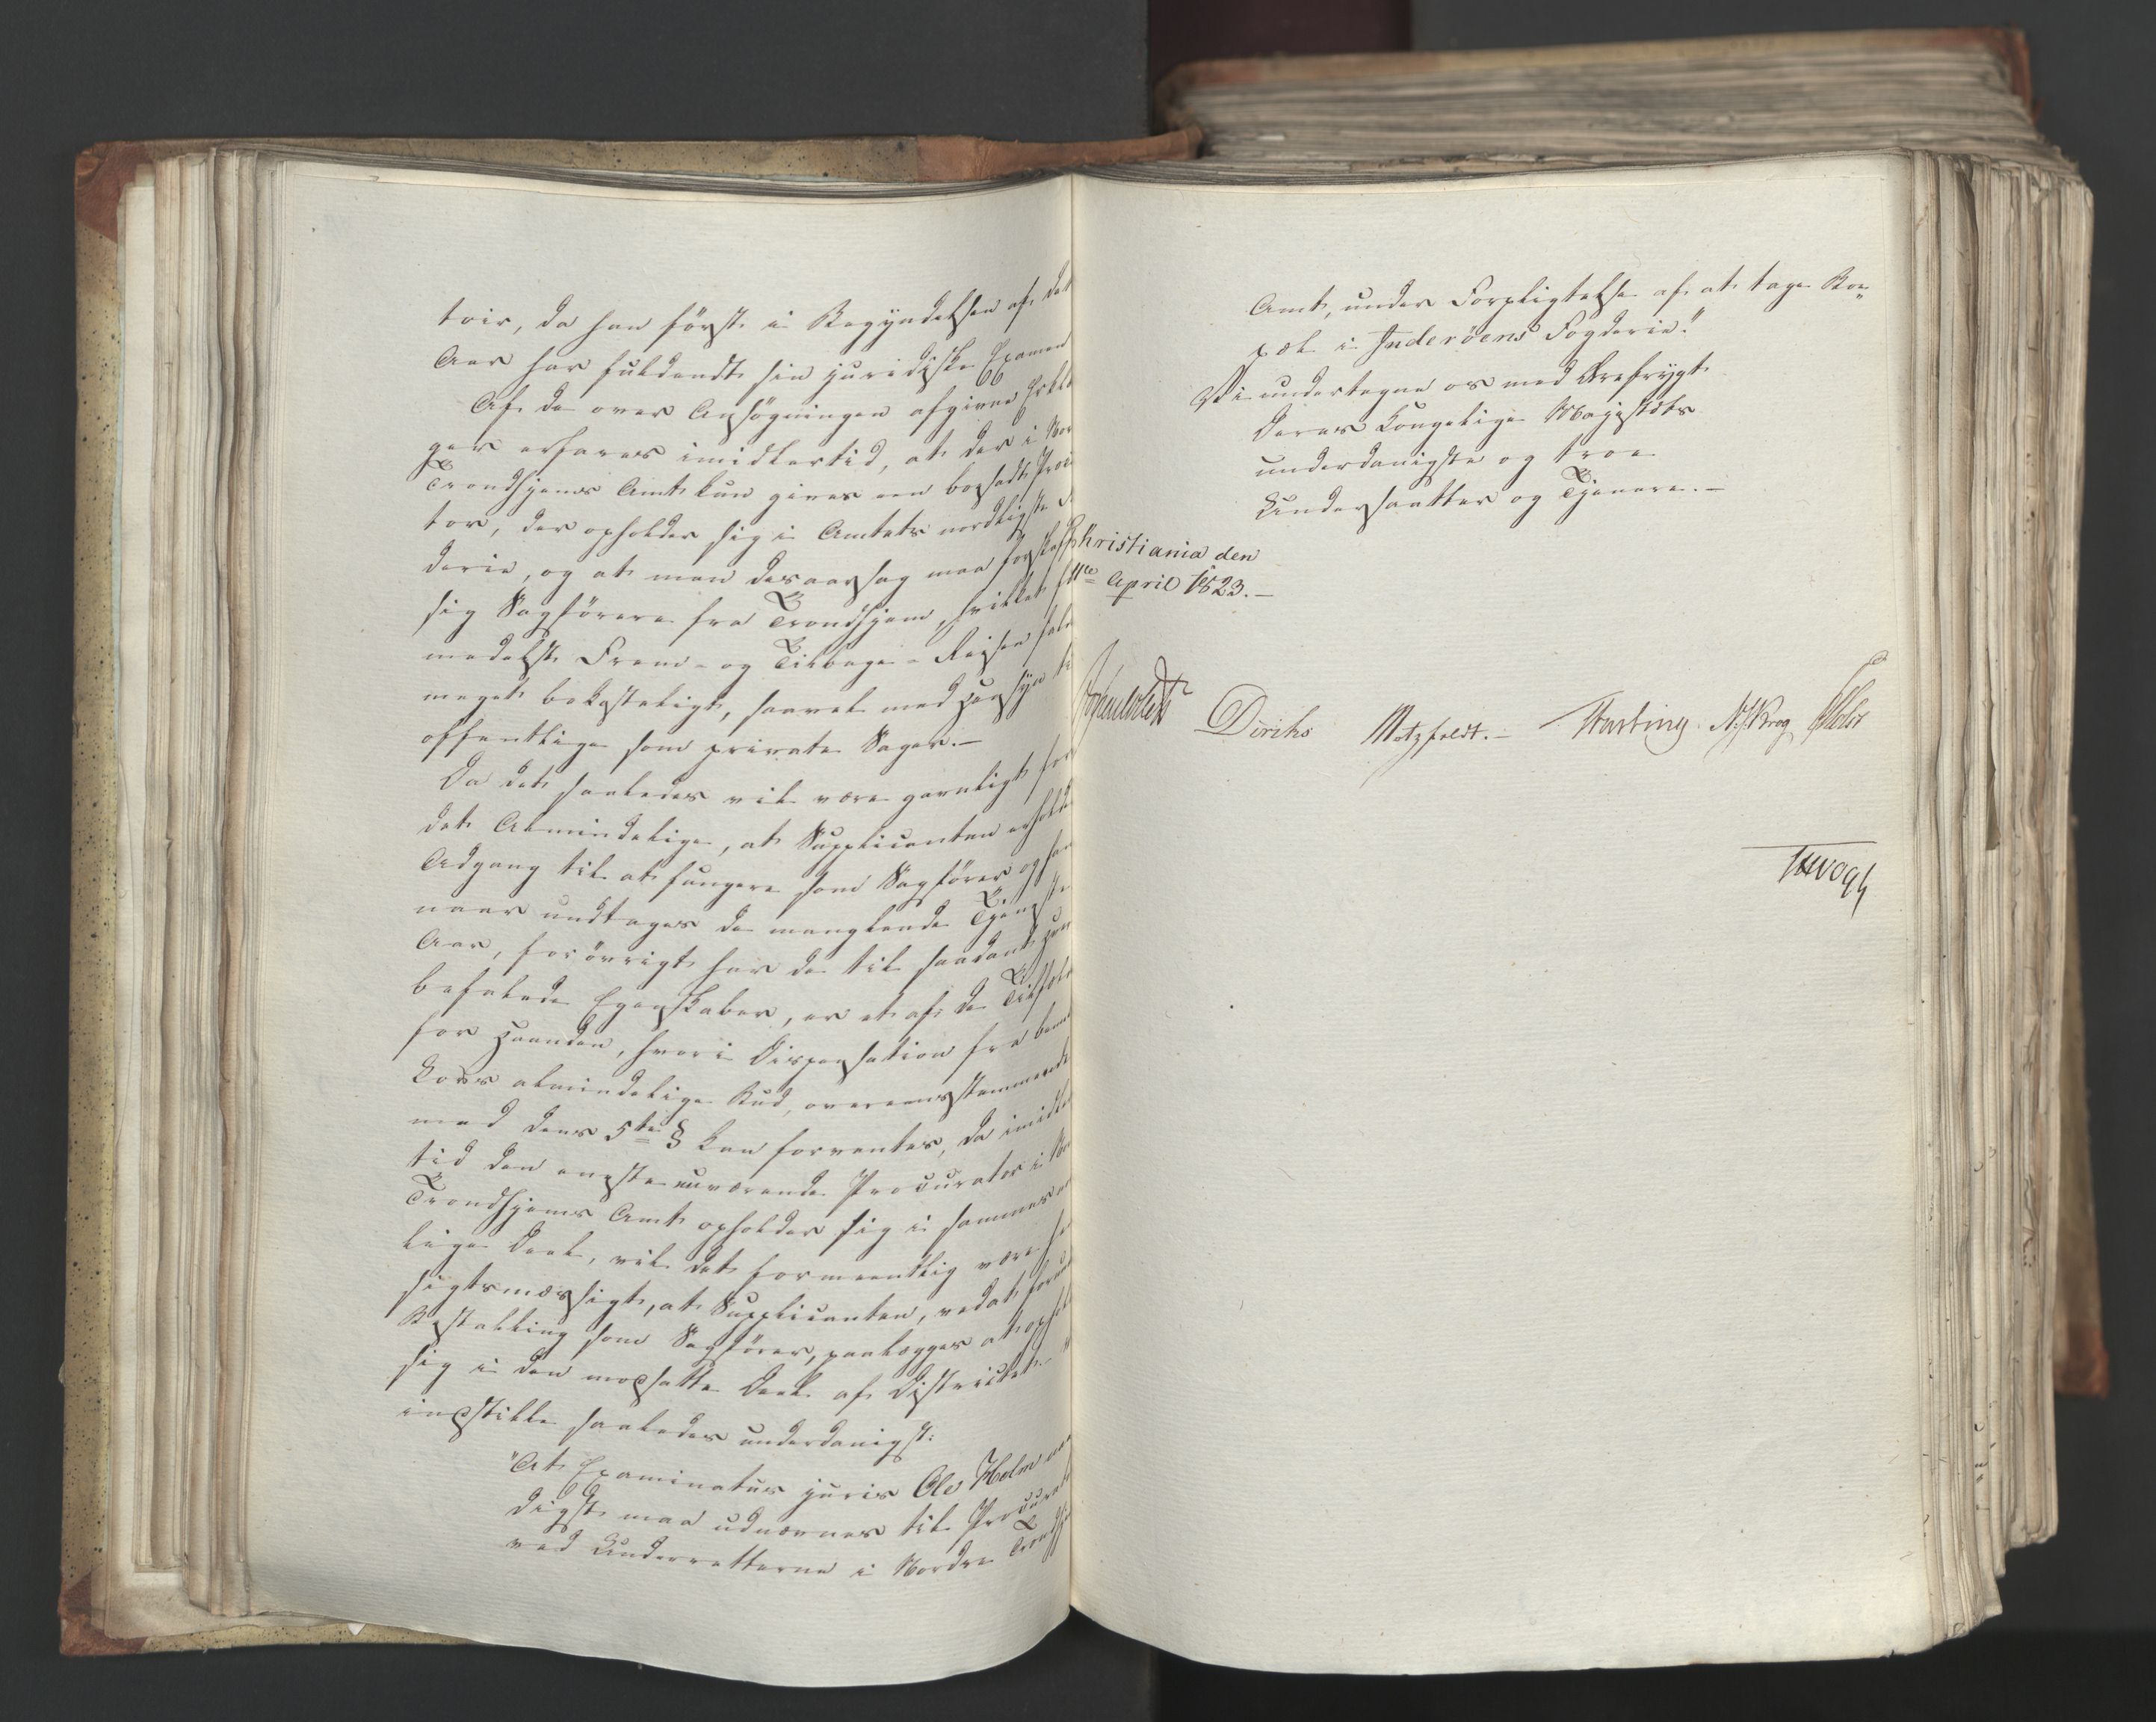 toir, da han först i Begyndelsen af det
Aar har fuldendt sin juridiske Examen
Af de over Ansögningen afgivne
ger erfares imidlertid, at der i
Trondhjems Amt kun gives een bosadt
tor, der opholder sig i Amtets nordligste
derie, og at man desaarsag maa
sig Sagförere fra Trondhjem, hvilket
medelst Frem- og Tilbage-Reisen
meget bekosteligt, saavel med Hensyn
offentlige som private Sager.-
Da det saaledes vil være gavnligt for
det Almindelige, at Supplicanten
Adgang til at fungere som Sagförer og han
naar undtages de manglende
Aar, forövrigt har de til saadant
befalede Egenskaber, er et af de
for Haanden, hvori Dispensation fra
Lovs almindelige Bud, overeensstemmende
med dens 5te § kan forventes, da
tid den eneste nuværende Procurator i
Trondhjems Amt opholder sig i sammes
lige Deel, vil det formeentlig være
sigtsmæssigt, at Supplicanten, ved at
Bestalling som Sagförer, paalægges at
sig i den modsatte Deel af Districtet.-
indstille saaledes underdanigst:
"At Examinatus juris Ole Holm
digst maa udnævnes til
ved Underretterne i Nordre
Amt, under Forpligtelse af at tage Boe„
pæl i Inderöens Fogderie."
Vi undertegne os med Ærefrygt
Deres Kongelige Majestæts
underdanigste og troe
Undersaatter og Tjenere.-
Christiania den
11te April 1823.-
Diriks Motzfeldt.- N. J. Krog
JHVogt